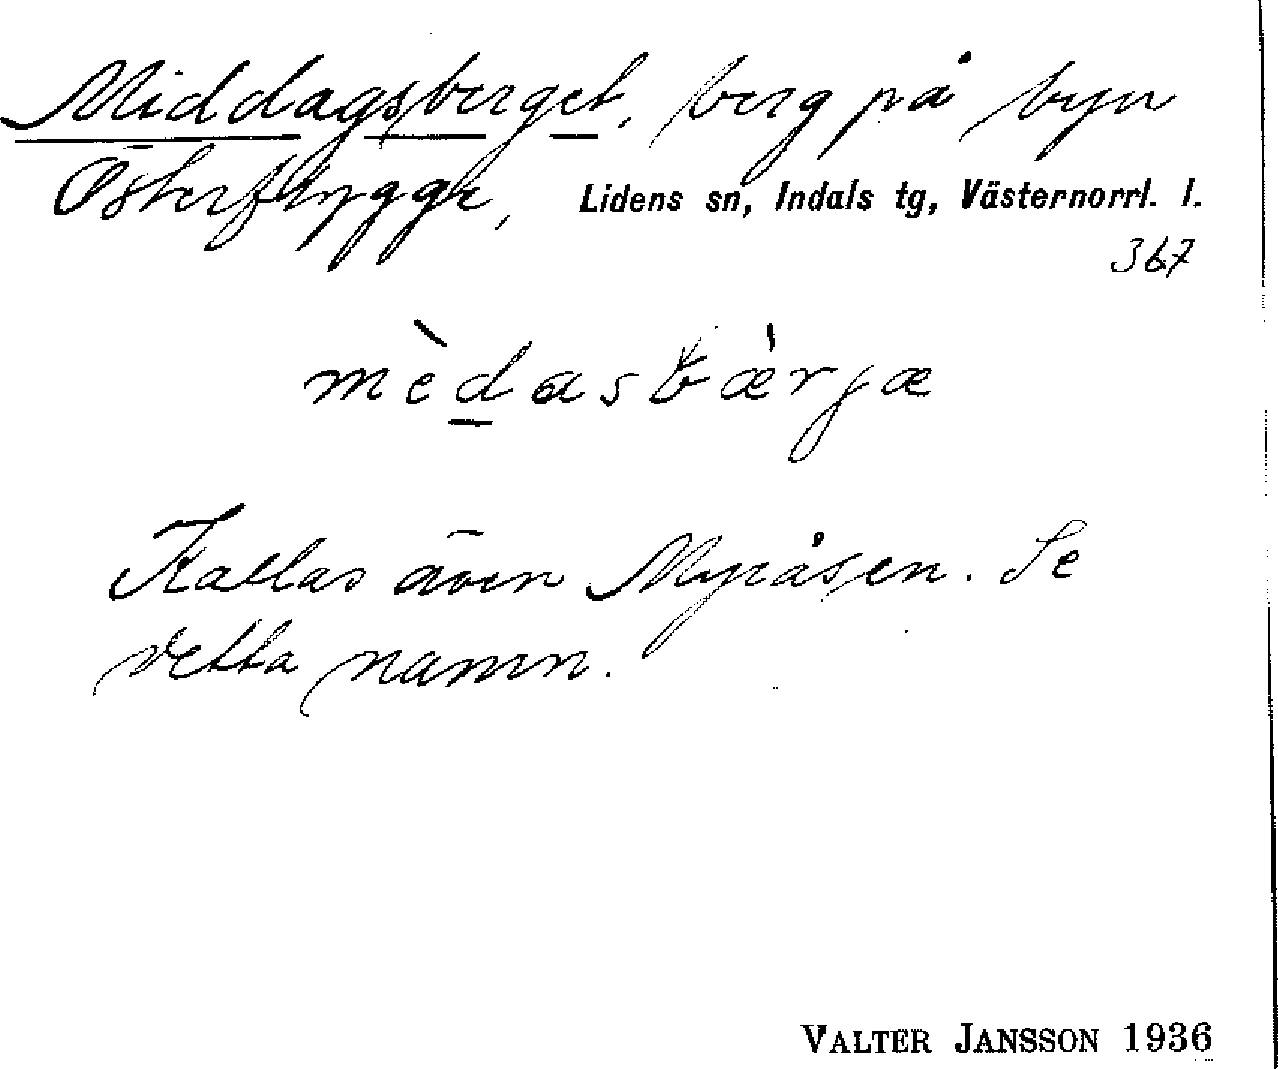 Middagsberget, berg på byn
Österflygge, Lidens sn, Indals tg, Västernorrl. l.
367
mèdasbærjæ
Kallas även Myråsen. Se
detta namn.
VALTER JANSSON 1936